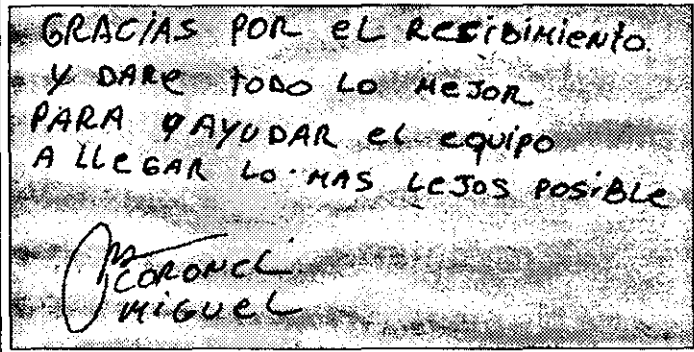 GRACIAS POR EL RESIBIMIENTO.
Y DARE TODO LO MEJOR
PARA AYUDAR EL EQUIPO
A LLEGAR LO MAS LEJOS POSIBLE
CORONEL
MIGUEL